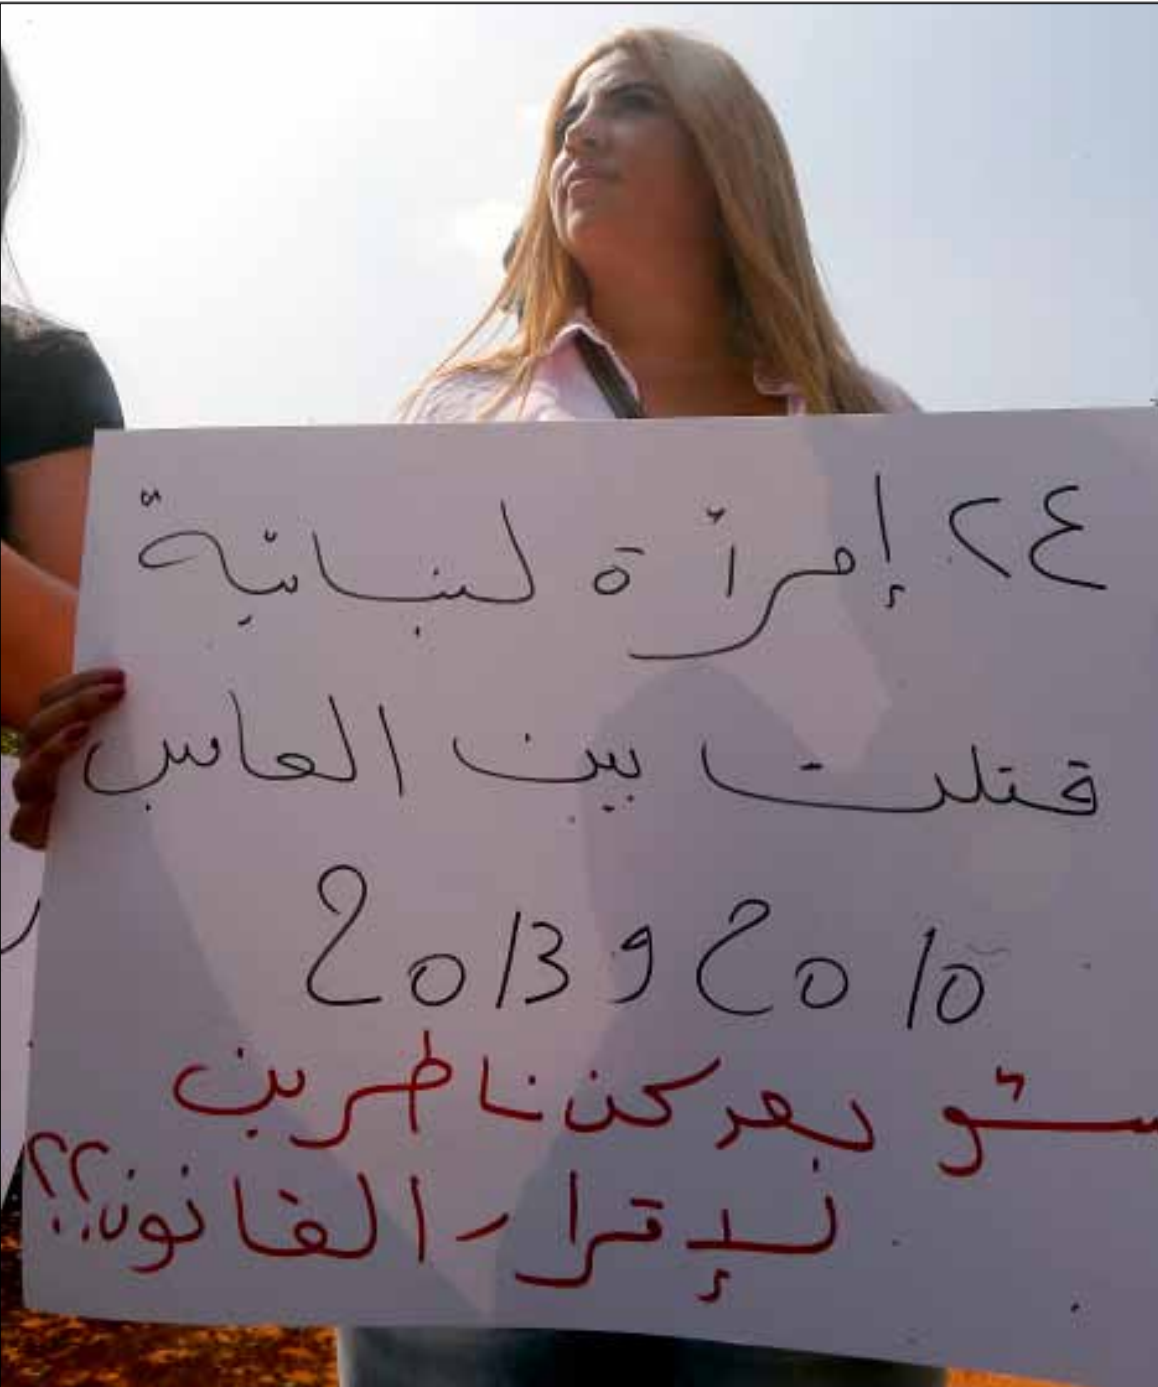 ٢٤ إمرأة لبنانية
قتلت بين العامي
2010 و 2013
شو بعدكن ناطرين
لإقرار القانون؟؟